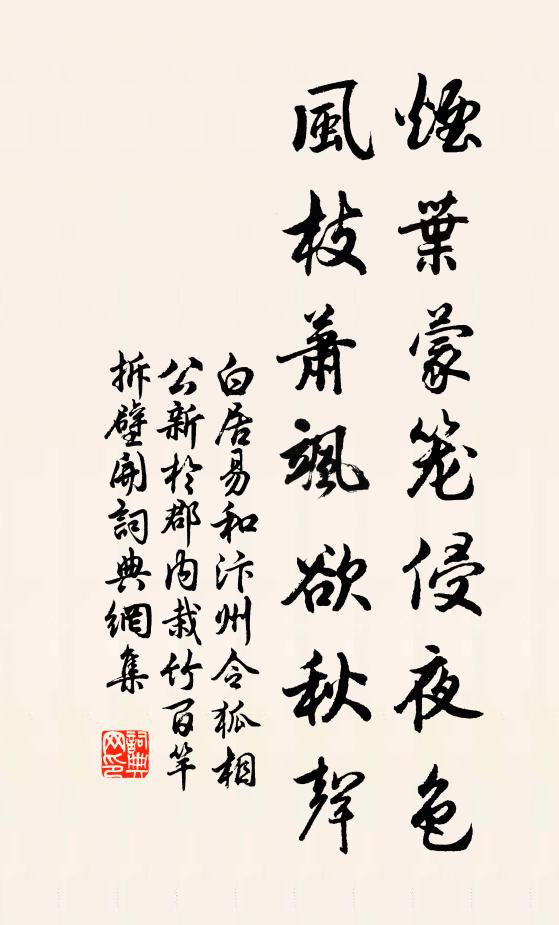 煙葉蒙笼侵夜色
風枝蕭颯欲秋聲
白居易和汴州令狐相
公新於郡内栽竹百竿
拆壁開詞典網集
詞典网印